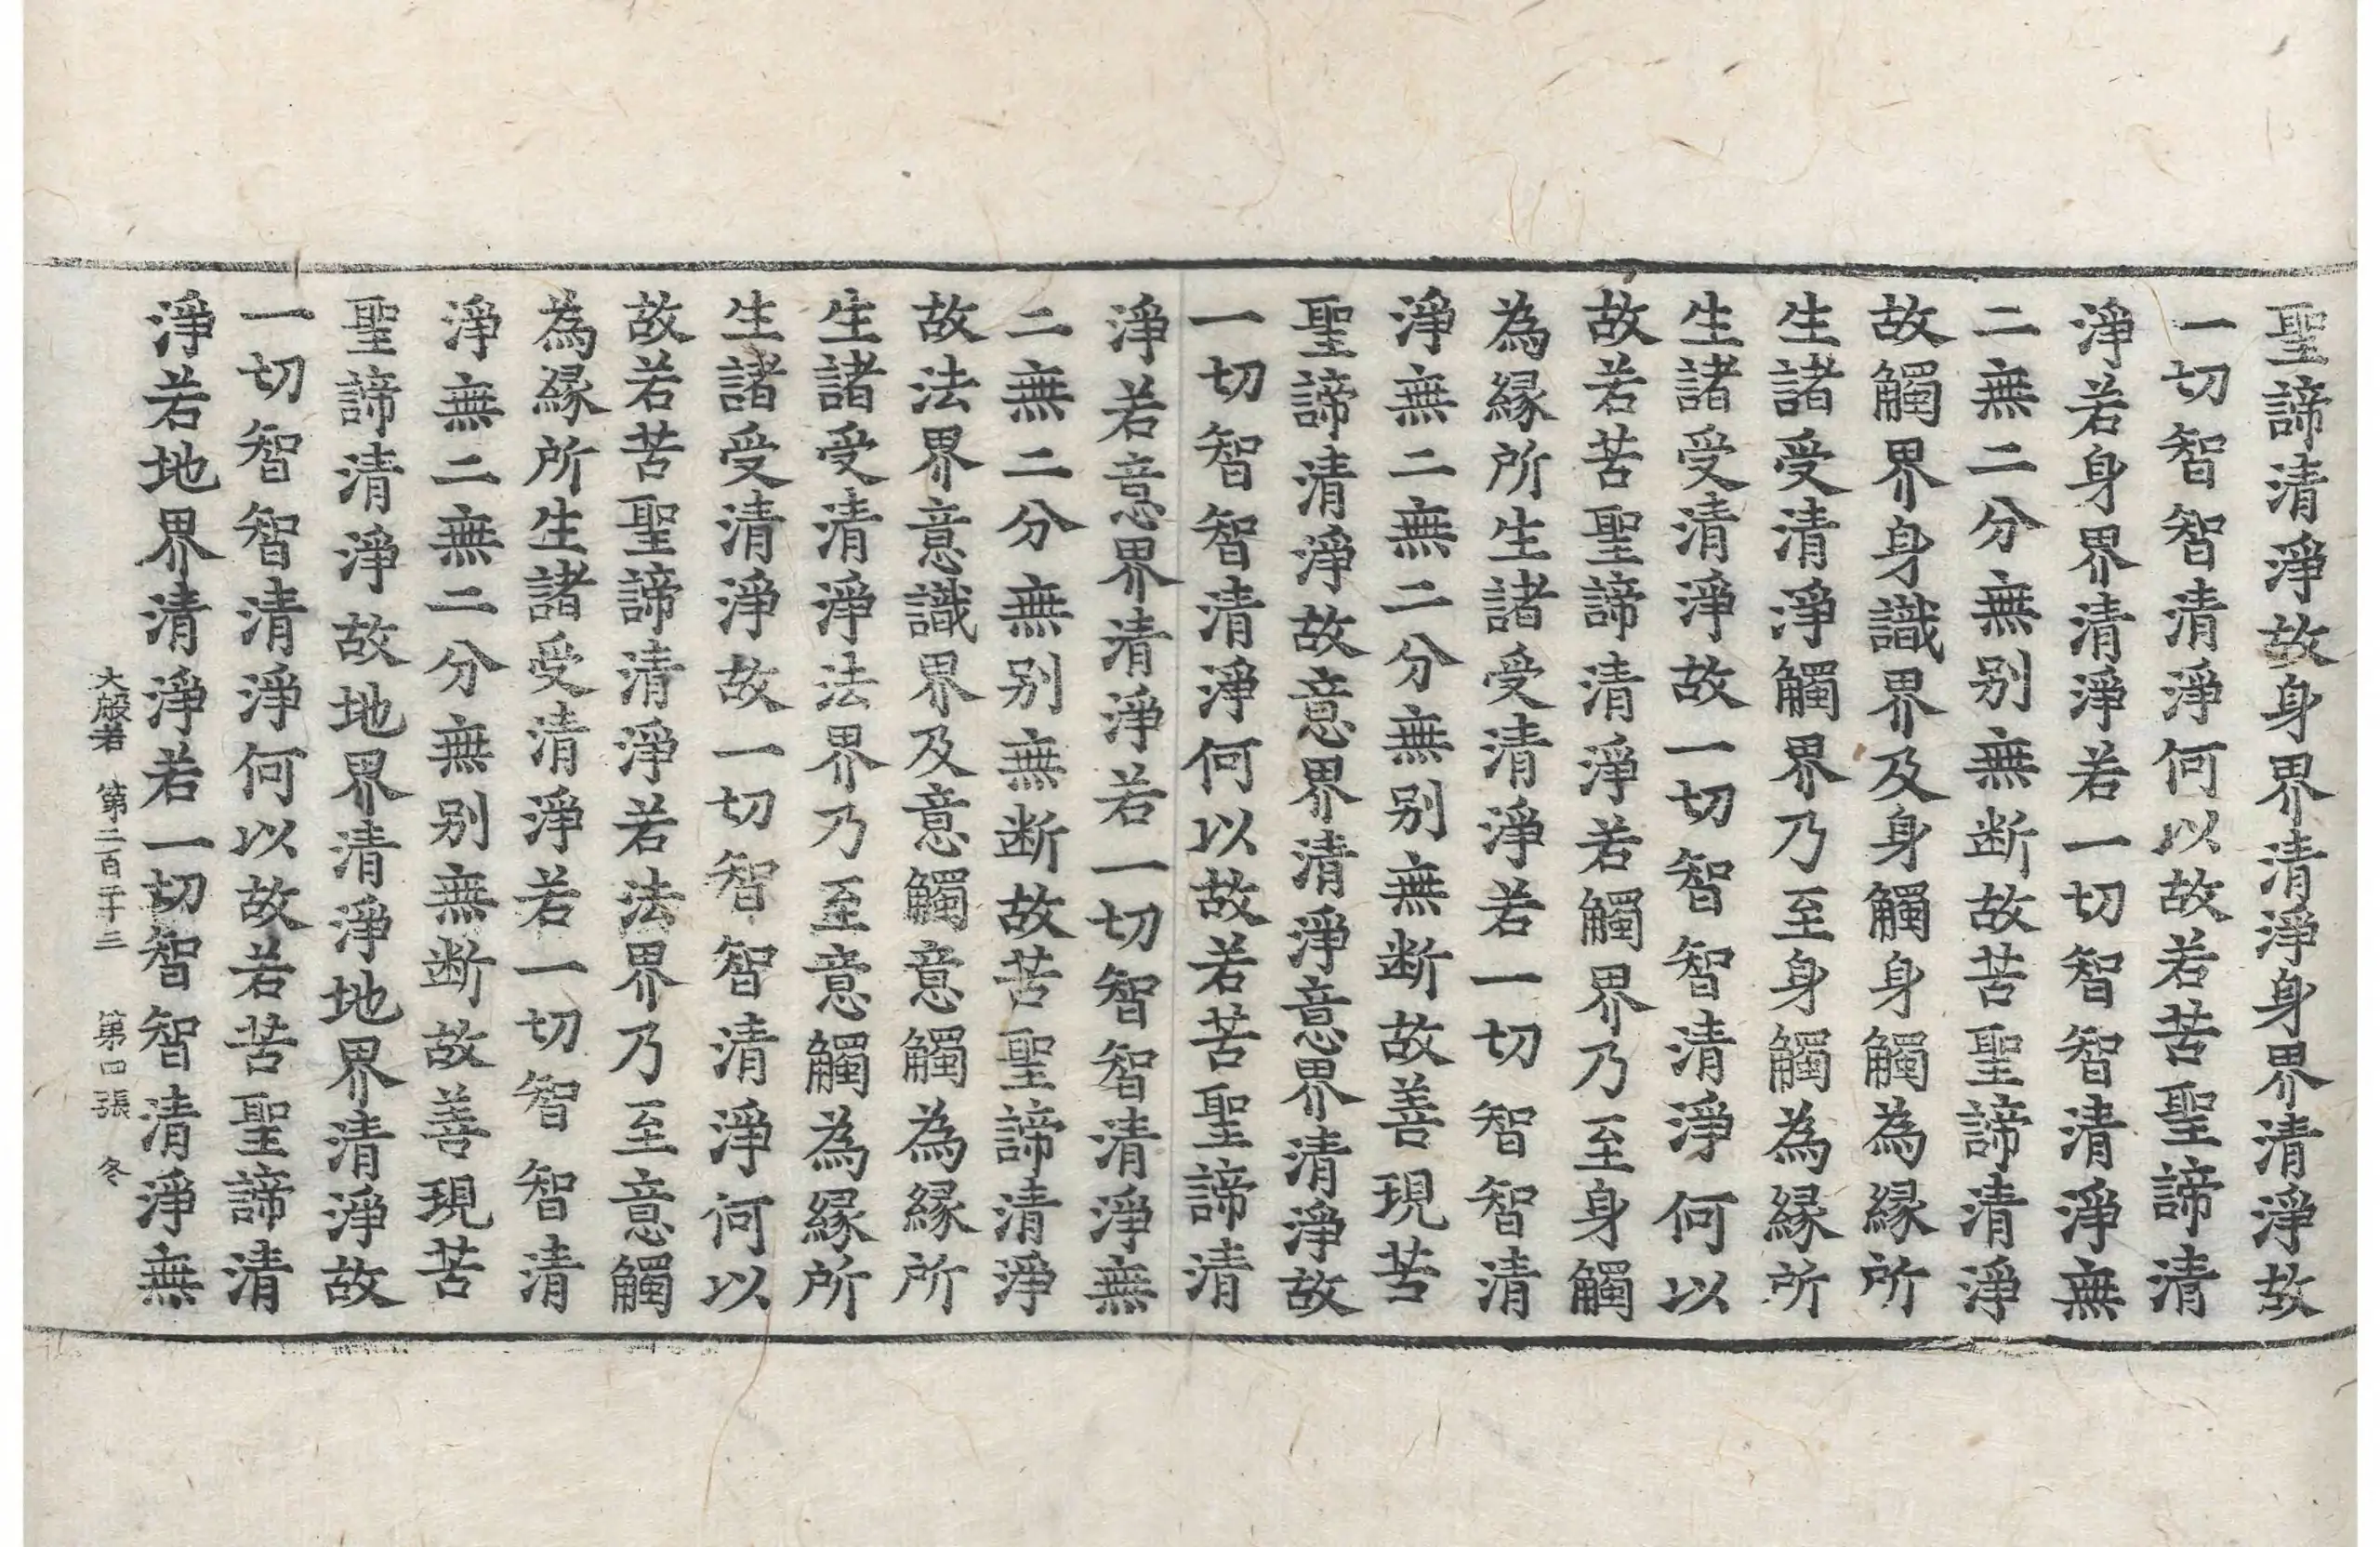 聖諦清淨故身界清淨身界清淨故
一切智智清淨何以故若苦聖諦清
淨若身界清淨若一切智智清淨無
二無二分無别無断故苦聖諦清淨
故觸界身識界及身觸身觸為縁所
生諸受清淨觸界乃至身觸為縁所
生諸受清淨故一切智智清淨何以
故若苦聖諦清淨若觸界乃至身觸
為縁所生諸受清淨若一切智智清
淨無二無二分無别無断故善現苦
聖諦清淨故意界清淨意界清淨故
一切智智清淨何以故若苦聖諦清
淨若意界清淨若一切智智清淨無
二無二分無别無断故苦聖諦清淨
故法界意識界及意觸意觸為縁所
生諸受清淨法界乃至意觸為縁所
生諸受清淨故一切智智清淨何以
故若苦聖諦清淨若法界乃至意觸
為縁所生諸受清淨若一切智智清
淨無二無二分無别無断故善現苦
聖諦清淨故地界清淨地界清淨故
一切智智清淨何以故若苦聖諦清
淨若地界清淨若一切智智清淨無
大般若 第二百二十三 第四張 冬